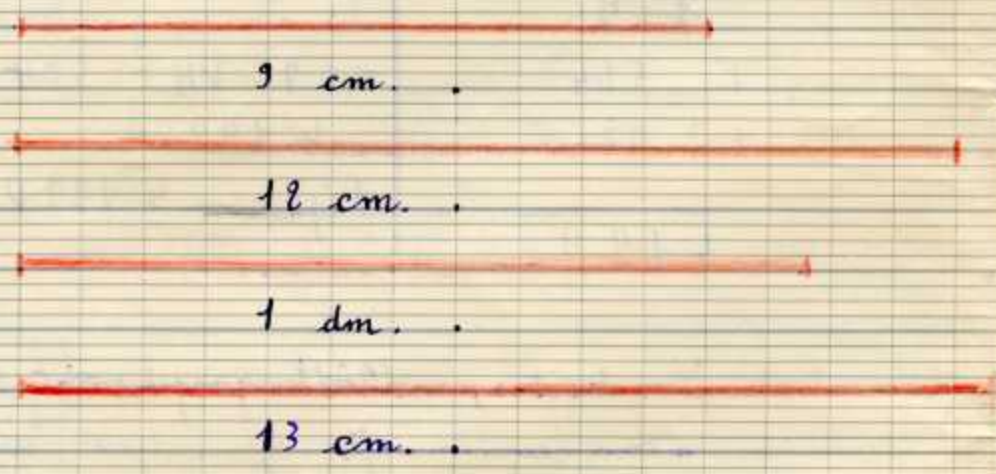 9 cm. .
12 cm. .
1 dm. .
13 cm. .